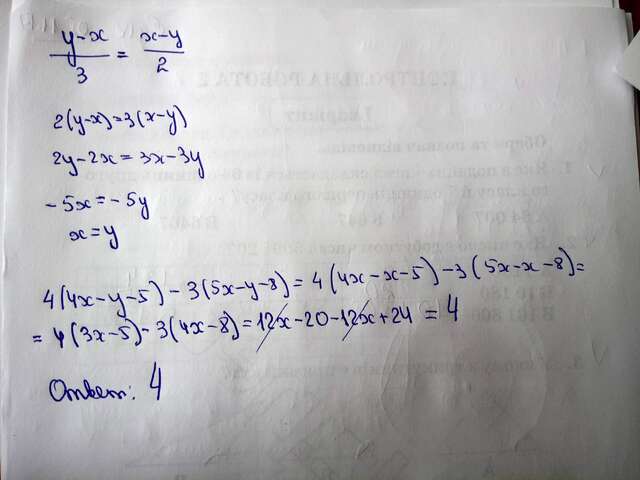 y-x/3 = x-y/2
2(y-x)=3(x-y)
2y-2x=3x-3y
-5x=-5y
x=y
4(4x-y-5)-3(5x-y-8)=4(4x-x-5)-3(5x-x-8)=
=4(3x-5)-3(4x-8)=12x-20-12x+24=4
Ответ: 4